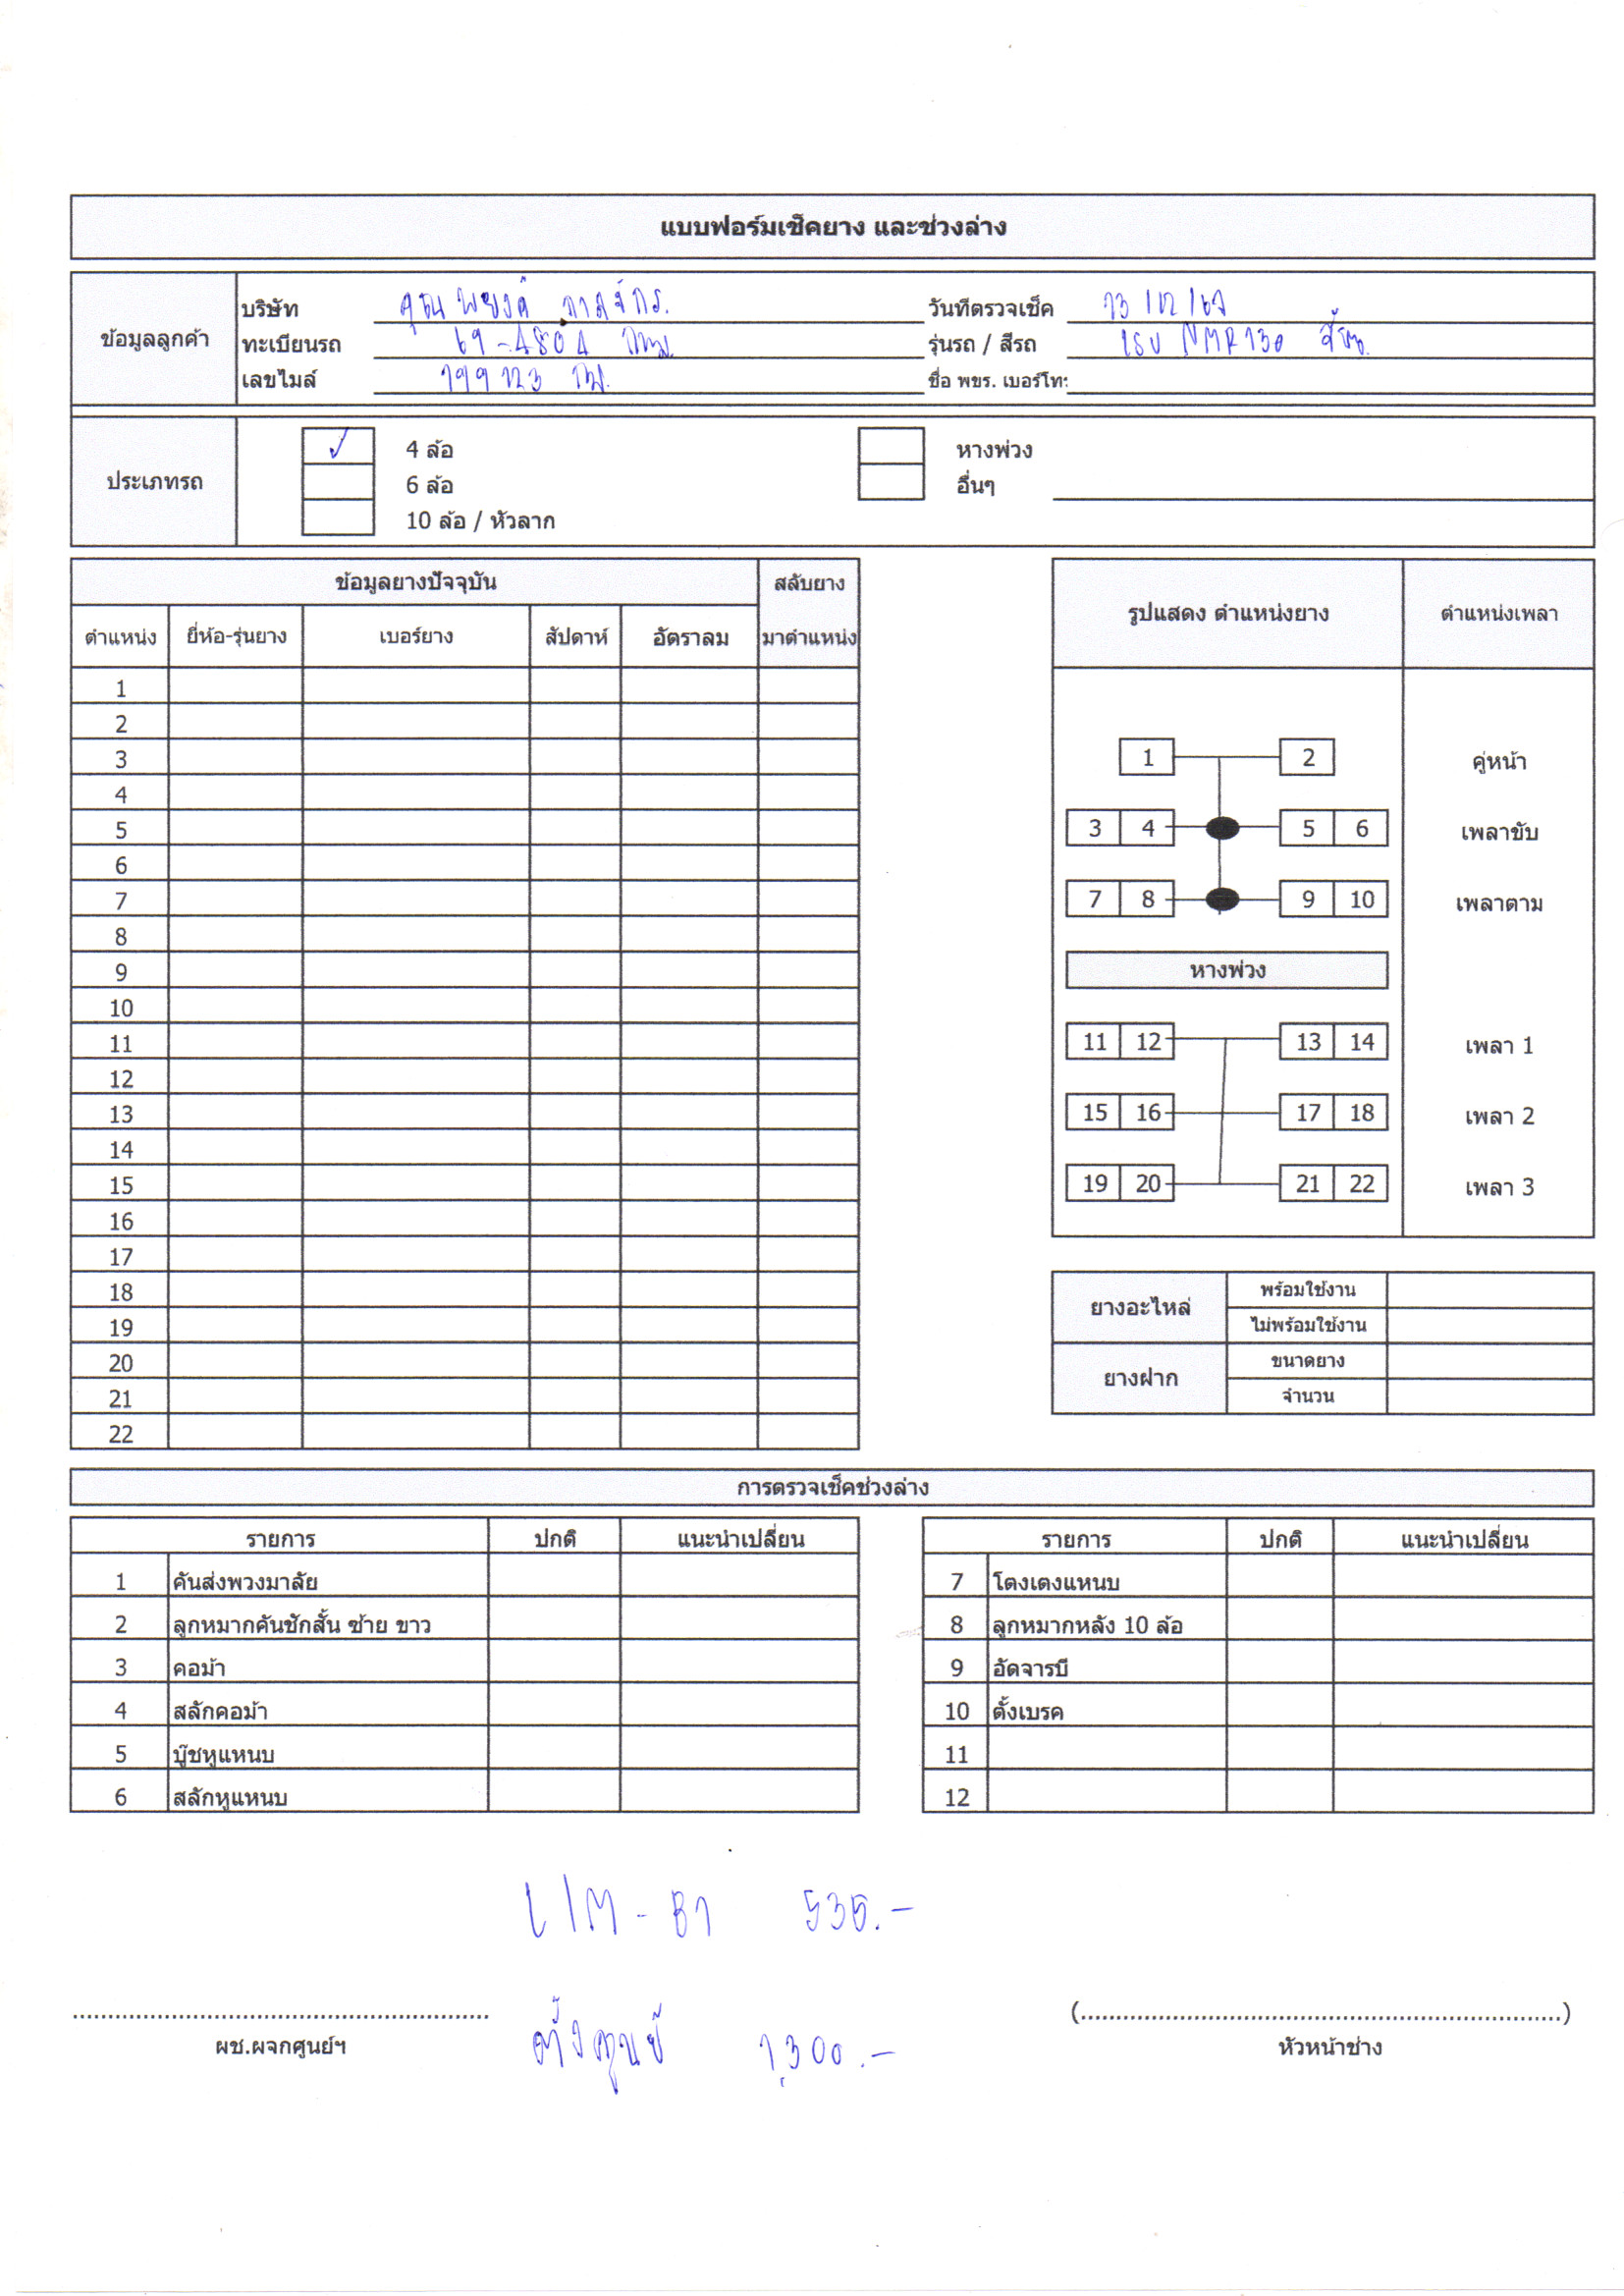 แบบฟอร์มเช็คยาง และช่วงล่าง
ข้อมูลลูกค้า
บริษัท คุณ
วันที่ตรวจเช็ค 13/12/67
ทะเบียนรถ 69-4804 กทม.
รุ่นรถ / สีรถ NMR130
เลขไมล์ 199123 กม.
ชื่อ พขร. เบอร์โทร
ประเภทรถ
✓ 4 ล้อ
หางพ่วง
6 ล้อ
อื่นๆ
10 ล้อ / หัวลาก
ข้อมูลยางปัจจุบัน สลับยาง
ตำแหน่ง ยี่ห้อ-รุ่นยาง เบอร์ยาง สัปดาห์ อัตราลม มาตำแหน่ง
1
2
3
4
5
6
7
8
9
10
11
12
13
14
15
16
17
18
19
20
21
22
รูปแสดง ตำแหน่งยาง ตำแหน่งเพลา
1 2 คู่หน้า
3 4 5 6 เพลาขับ
7 8 9 10 เพลาตาม
หางพ่วง
11 12 13 14 เพลา 1
15 16 17 18 เพลา 2
19 20 21 22 เพลา 3
ยางอะไหล่ พร้อมใช้งาน
ไม่พร้อมใช้งาน
ยางฝาก ขนาดยาง
จำนวน
การตรวจเช็คช่วงล่าง
รายการ ปกติ แนะนำเปลี่ยน
1 คันส่งพวงมาลัย
2 ลูกหมากคันชักสั้น ซ้าย ขาว
3 คอม้า
4 สลักคอม้า
5 บู๊ชหูแหนบ
6 สลักหูแหนบ
รายการ ปกติ แนะนำเปลี่ยน
7 โตงเตงแหนบ
8 ลูกหมากหลัง 10 ล้อ
9 อัดจารบี
10 ตั้งเบรค
11
12
535.-
ตั้งศูนย์ 1,300.-
ผช.ผจกศูนย์ฯ
(....................)
หัวหน้าช่าง